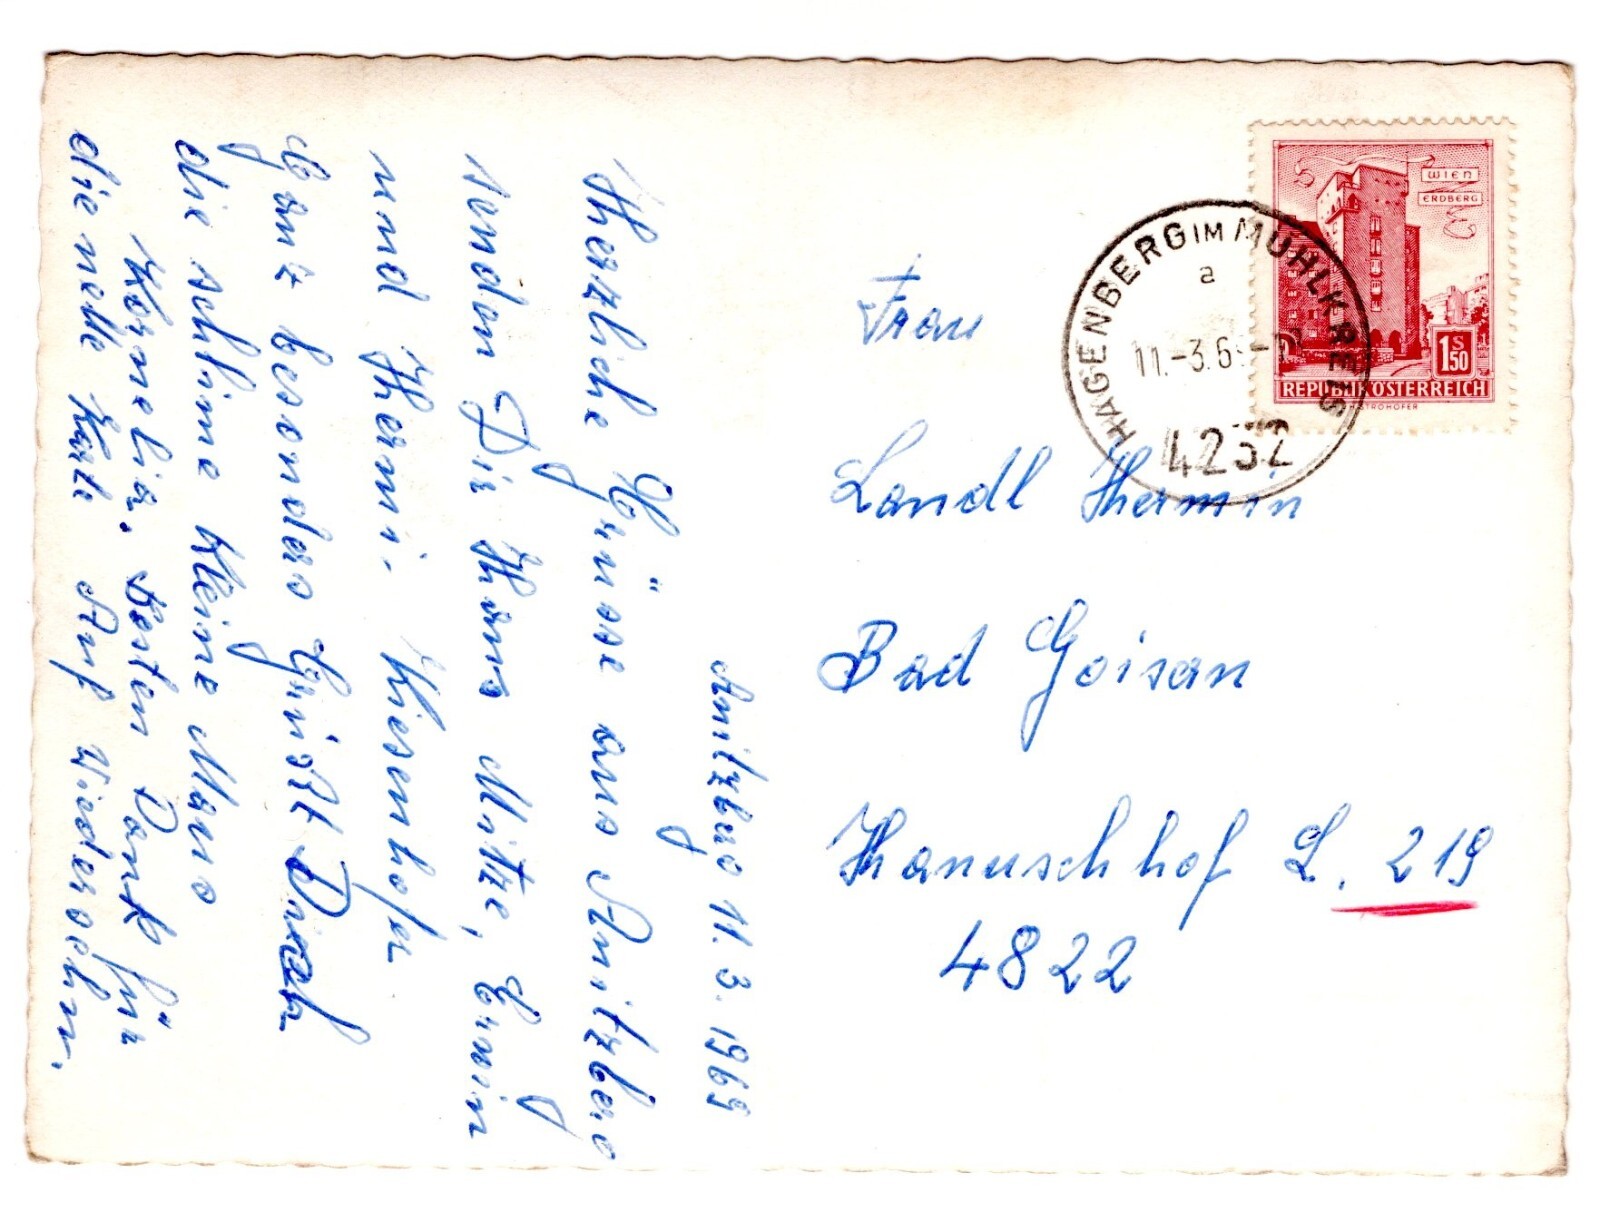 Anitzbug 11.3.1969
Herzliche Grüsse aus Anitzberg
senden Dir Hans Mitze, Erwin
und Hermi. Kiesenhofer
Ganz besonders Grüßt Dich
die schlime Kleine Maus
Kornelia. Besten Dank für
die nette Karte Auf Wiedersehn.
Frau
Landl Hermin
Bad Goisan
Hanuschhof L. 219
4822
HAGENBERG IM MÜHLKREIS
a
11.-3.6
4232
WIEN
ERDBERG
1 S 50
REPUBLIK ÖSTERREICH
STROHOFER